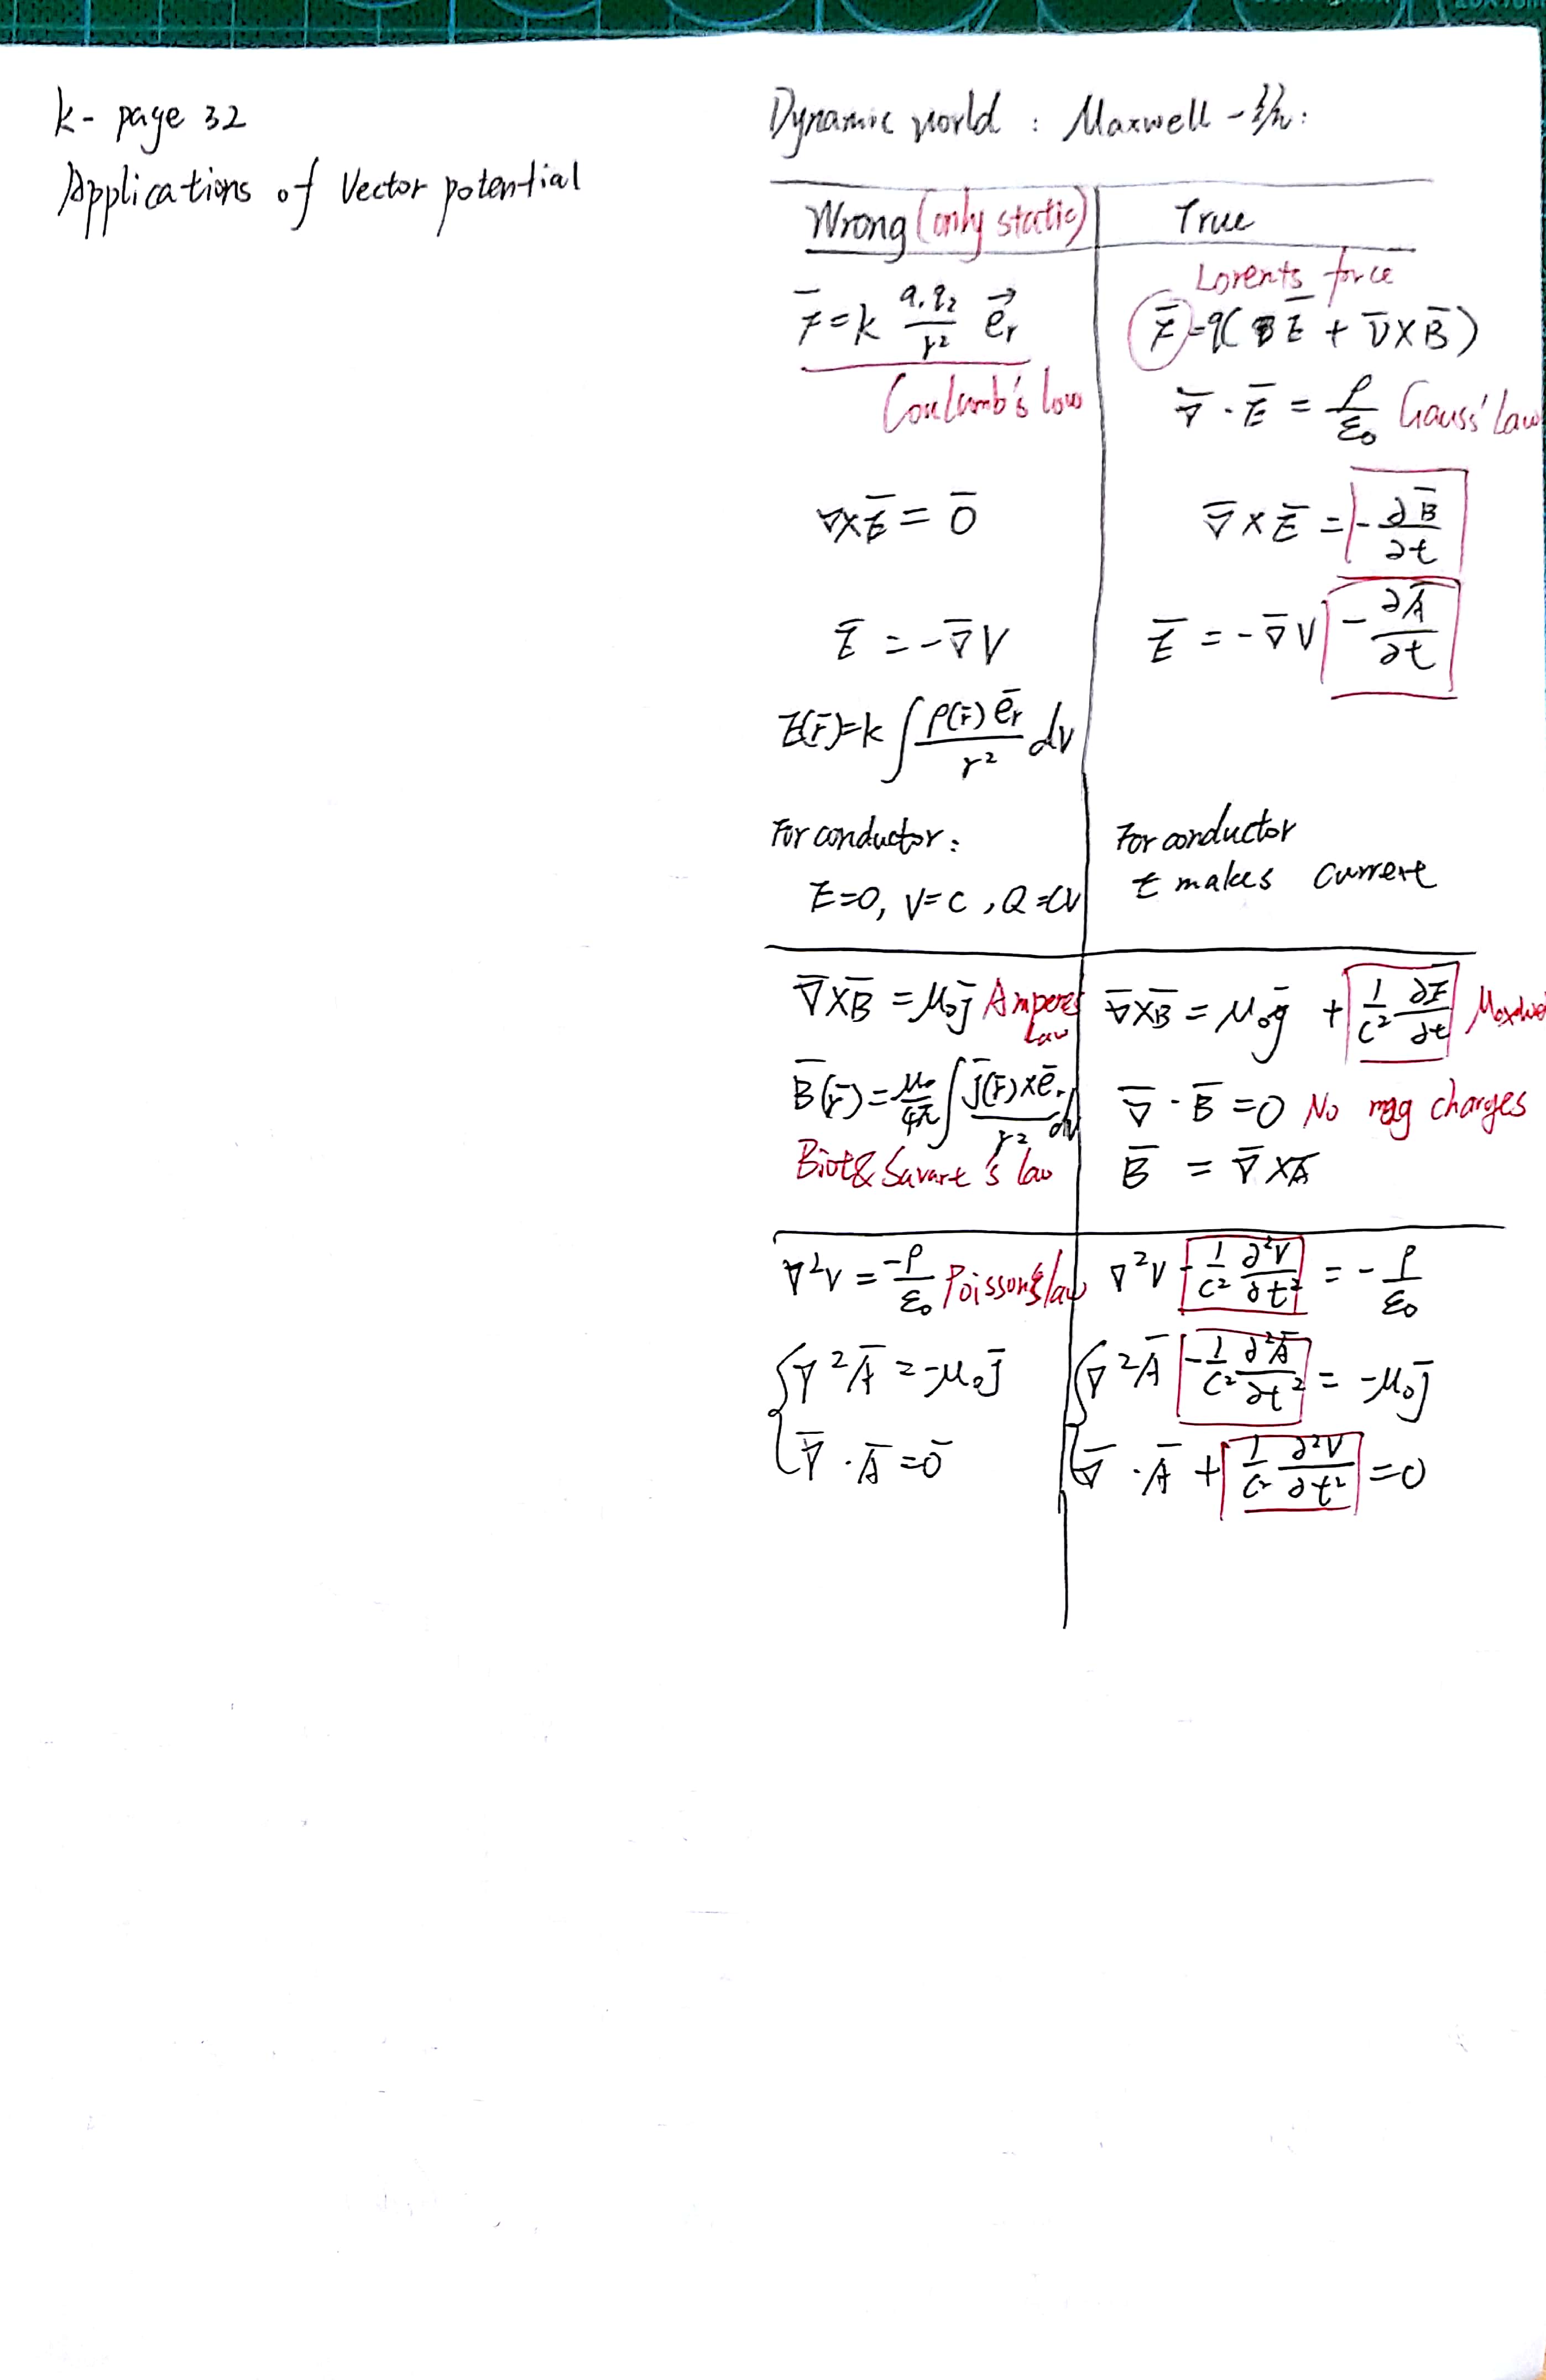 k- page 32
Applications of Vector potential
Dynamic world : Maxwell -统:
Wrong (only static)
True
F̄ = k q₁q₂/r² e⃗ᵣ
Coulumb's low
Lorents force
F̄ = q( Ē + v̄ × B̄ )
∇̄ · Ē = ρ/ε₀ Gauss' Law
∇×Ē = 0̄
∇̄ × Ē = -∂B̄/∂t
Ē = -∇̄V
Ē = -∇̄V - ∂Ā/∂t
E(r̄) = k ∫ ρ(r̄) ēᵣ/r² dv
For conductor :
E=0, V=C , Q=CV
For conductor
E makes current
∇̄×B̄ = μ₀j̄ Amperes Law
∇̄×B̄ = μ₀j̄ + 1/c² ∂Ē/∂t
B̄(r̄) = μ₀/4π ∫ j̄(r̄)×ēᵣ/r² dv
Biot & Savart's law
∇̄ · B̄ = 0 No mag charges
B̄ = ∇̄ ×Ā
∇²V = -ρ/ε₀ Poisson's law
∇²V - 1/c² ∂²V/∂t² = - ρ/ε₀
∇²Ā = -μ₀j̄
∇²Ā - 1/c² ∂²Ā/∂t² = -μ₀j̄
∇̄ · Ā = 0̄
∇̄ · Ā + 1/c² ∂²V/∂t² = 0